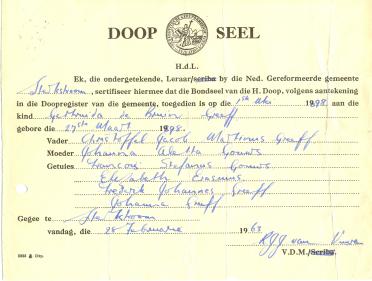 DOOP SEEL
H.d.L.
Ek, die ondergetekende, Leraar/scriba by die Ned. Gereformeerde gemeente
Sterkstroom, sertifiseer hiermee dat die Bondseel van die H. Doop, volgens aantekening
in die Doopregister van die gemeente, toegedien is op die 1ste Mei 1898 aan die
kind Gertruida de Bruin Greeff
gebore die 27ste Maart 1898.
Vader Christoffel Jacob Mathinus Greeff
Moeder Johanna Aletta Gouws
Getuies Francois Stefanus Gouws
Elizabeth Erasmus
Frederik Johannes Greeff
Johanna Greeff
Gegee te Sterkstroom
vandag, die 28 Februarie 1963
V.D.M./Scriba.